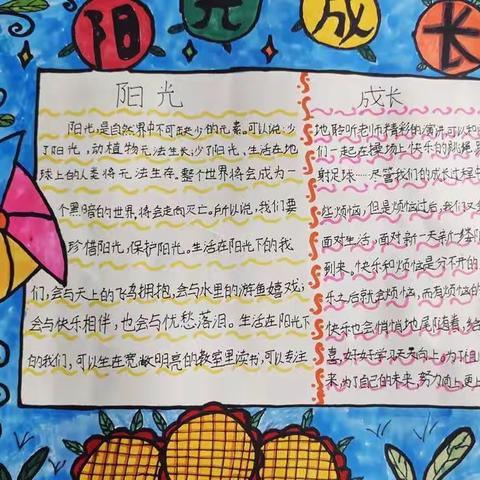 阳光成长
阳光
阳光，是自然界中不可缺少的元素。可以说：少
了阳光，动植物无法生长；少了阳光，生活在地
球上的人类将无法生存。整个世界将会成为一
个黑暗的世界，将会走向灭亡。所以说，我们要
珍惜阳光，保护阳光。生活在阳光下的我
们，会与天上的飞鸟拥抱，会与水里的游鱼嬉戏；
会与快乐相伴，也会与忧愁落泪。生活在阳光下
的我们，可以坐在宽敞明亮的教室里读书，可以专注
成长
地聆听老师精彩的演讲，可以和
们一起在操场上快乐的跳绳、
射足球……尽管我们的成长过程
些烦恼，但是烦恼过后，我们又会
面对生活，面对新一天新
到来，快乐和烦恼是分不开的
乐之后就会烦恼，而烦恼的
快乐也会悄悄地尾随着，给
喜，好好学习天天向上，为了
来，为了自己的未来，努力向上更上